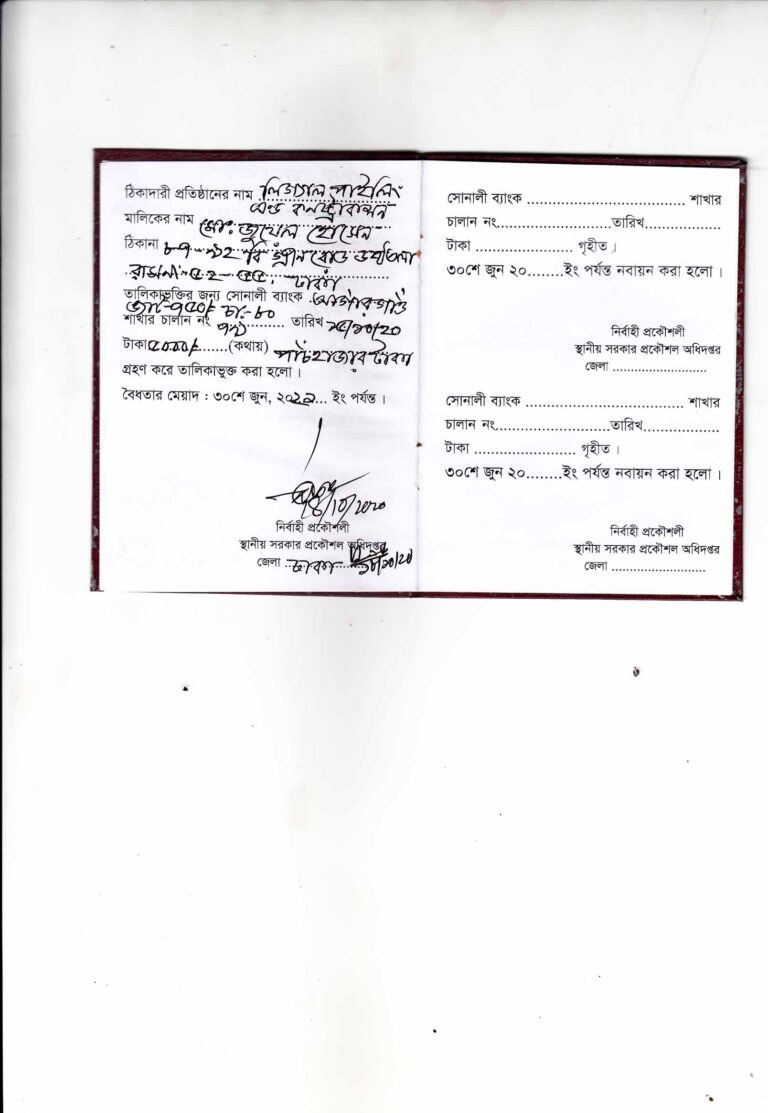 ঠিকাদারী প্রতিষ্ঠানের নাম লিগ্যাল পাইলিং
এন্ড কনস্ট্রাকশন
মালিকের নাম মো: জুয়েল হোসেন
ঠিকানা
ঢাকা
তালিকাভুক্তির জন্য সোনালী ব্যাংক
শাখার চালান নং ......... তারিখ ১৫/১০/২০
টাকা ৫০০০/- ......(কথায়) পাঁচহাজার টাকা
গ্রহণ করে তালিকাভুক্ত করা হলো ।
বৈধতার মেয়াদ : ৩০শে জুন, ২০২১... ইং পর্যন্ত ।
/10/2020
নির্বাহী প্রকৌশলী
স্থানীয় সরকার প্রকৌশল অধিদপ্তর
জেলা ..ঢাকা
সোনালী ব্যাংক .................................... শাখার
চালান নং..........................তারিখ.................
টাকা ...................... গৃহীত ।
৩০শে জুন ২০........ইং পর্যন্ত নবায়ন করা হলো ।
নির্বাহী প্রকৌশলী
স্থানীয় সরকার প্রকৌশল অধিদপ্তর
জেলা ..........................
সোনালী ব্যাংক .................................... শাখার
চালান নং..........................তারিখ.................
টাকা ...................... গৃহীত ।
৩০শে জুন ২০........ইং পর্যন্ত নবায়ন করা হলো ।
নির্বাহী প্রকৌশলী
স্থানীয় সরকার প্রকৌশল অধিদপ্তর
জেলা ..........................